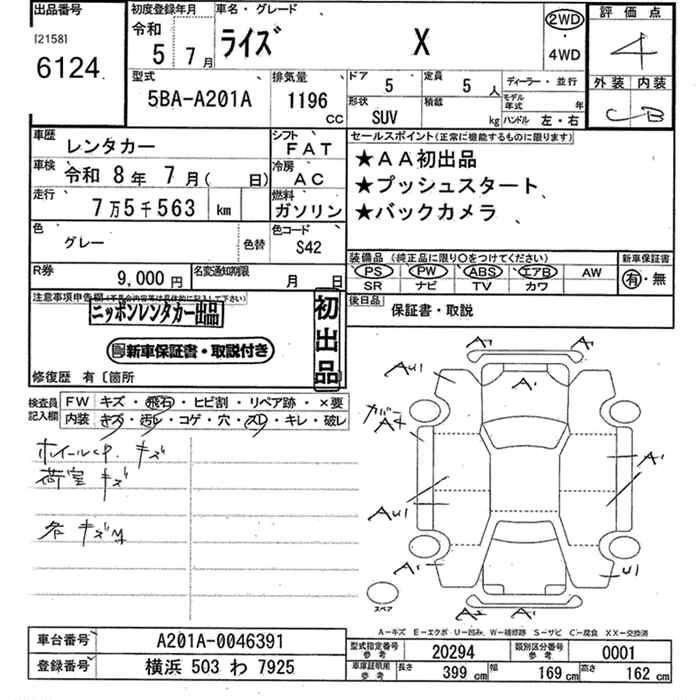 出品番号 初度登録年月 車名・グレード 評価点
[2158] 令和 ライズ X 2WD 4
6124 5 7月 ・ 4WD
型式 排気量 ドア 定員 ディーラー・並行 外装 内装
5BA-A201A 1196 CC 5 5人 モデル年式 年 C B
形状 SUV 積載 kg ハンドル 左・右
車歴 レンタカー シフト FAT セールスポイント(正常に機能するものに限ります)
車検 令和 8年 7月( 日) 冷房 AC ★AA初出品
走行 7万5千563 km 燃料 ガソリン ★プッシュスタート
★バックカメラ
色 グレー 色替 色コード S42
装備品 (純正品に限り○をつけてください) 新車保証書
R券 9,000円 名変通知期限 月 日 PS PW ABS エアB AW 有・無
SR ナビ TV カワ
注意事項申告欄 後日品 保証書・取説
ニッポンレンタカー出品
初出品
新車保証書・取説付き
修復歴 有〔箇所
検査員記入欄 FW キズ・飛石・ヒビ割・リペア跡・×要
内装 キズ・汚レ・コゲ・穴・スレ・キレ・破レ
ホイールCP. キズ
荷室 キズ
各 キズM
A1 A1 AU1
カバー A4
A1
AU1
A1 U1
A2 A1
スペア
A−キズ E−エクボ U−凹み W−補修跡 S−サビ C−腐食 XX−交換済
車台番号 A201A-0046391 型式指定番号 参考 20294 類別区分番号 参考 0001
登録番号 横浜 503 わ 7925 車庫証明用 参考 長さ 399 cm 幅 169 cm 高さ 162 cm